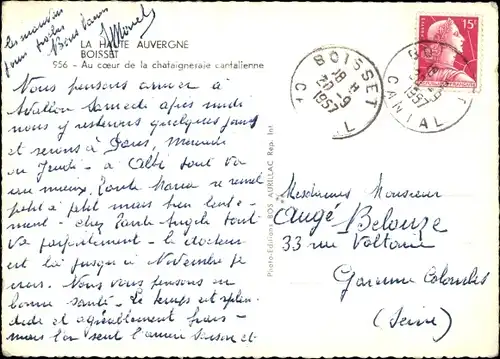 les
pour
Bons
LA HAUTE AUVERGNE
BOISSET
956 - Au cœur de la chataigneraie cantalienne
Nous pensons arriver à
Avallon Samedi après midi
nous y resterons quelques jours
et serons à Paris, Mercredi
ou Jeudi - à Albi tout va
au mieux. Tante Maria se remet
petit à petit mais bien lente-
ment - chez Tante Angèle tout
va parfaitement - le docteur
est là jusqu'à Novembre je
crois. Nous vous pensons en
bonne santé - Le temps est splen-
dide et agréablement frais -
mais l'on sent l'arrière saison et
Photo-Editions BOS AURILLAC Rep. Int.
BOISSET
18 H
20-9
1957
CANTAL
15F
Mesdames Monsieur
Augé Belouze
33 rue Voltaire
Garenne Colombes
(Seine)